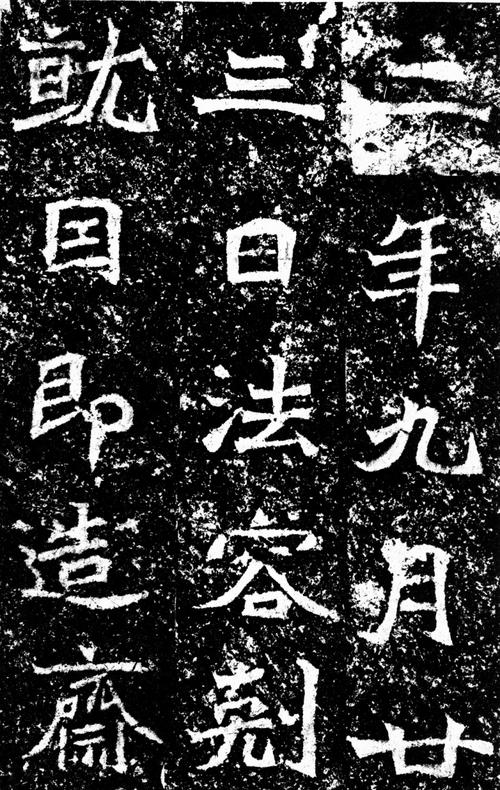 二年九月廿
三日法容剋
就因即造齋